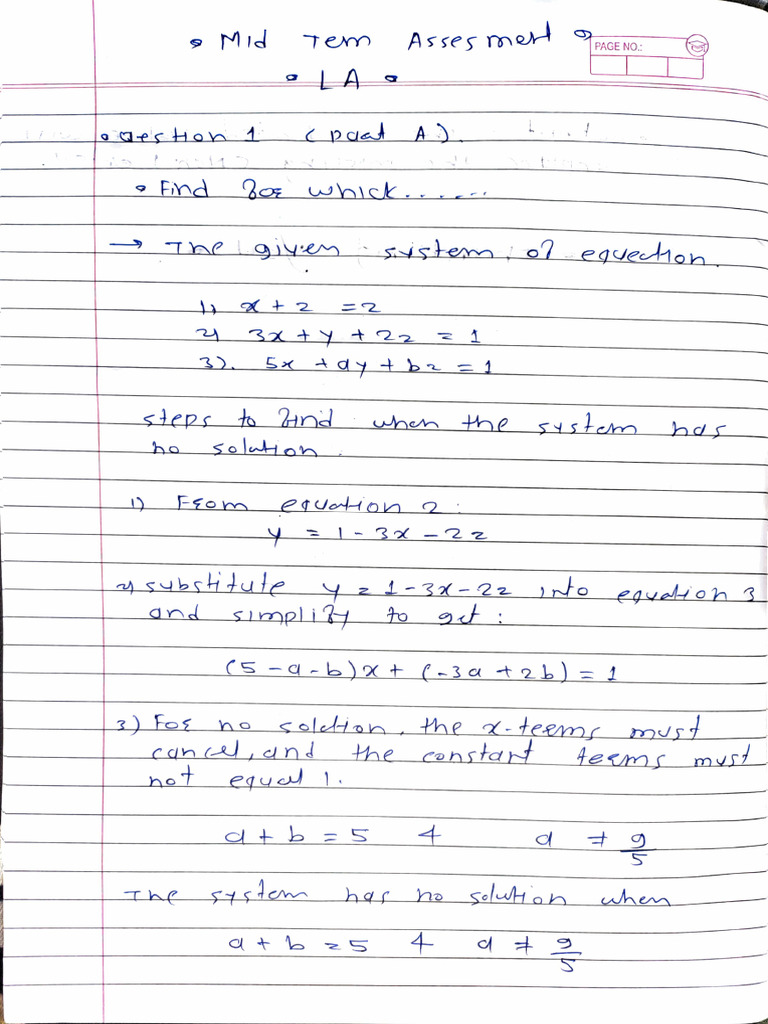 • Mid Tem Assesment •
PAGE NO.:
• LA •
• Question 1 (Part A).
• Find for which......
→ The given system of equection.
1) x + z = 2
2) 3x + y + 2z = 1
3). 5x + ay + bz = 1
steps to find when the system has
no solution.
1) From equation 2:
y = 1 - 3x - 2z
2) substitute y = 1 - 3x - 2z into equation 3
and simplify to get:
(5 - a - b)x + (-3a + 2b) = 1
3) For no solution, the x-terms must
cancel, and the constant terms must
not equal 1.
a + b = 5 & a ≠ 9/5
The system has no solution when
a + b = 5 & a ≠ 9/5